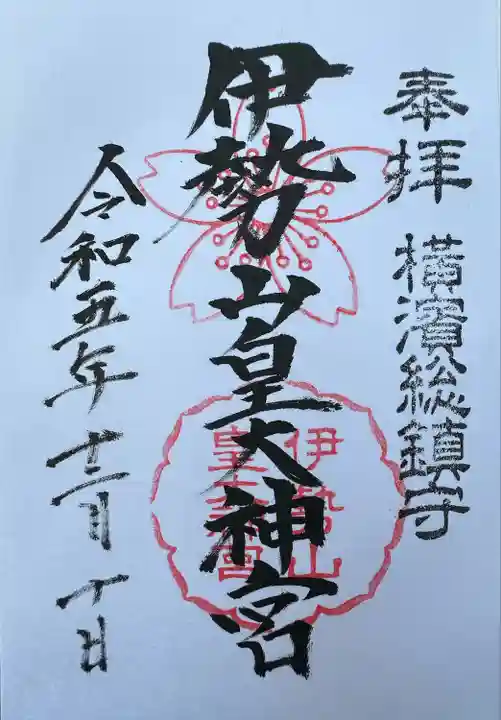 奉拝 横濱総鎮守
伊勢山皇大神宮
伊勢山
皇大神宮
令和五年 十二月 十日